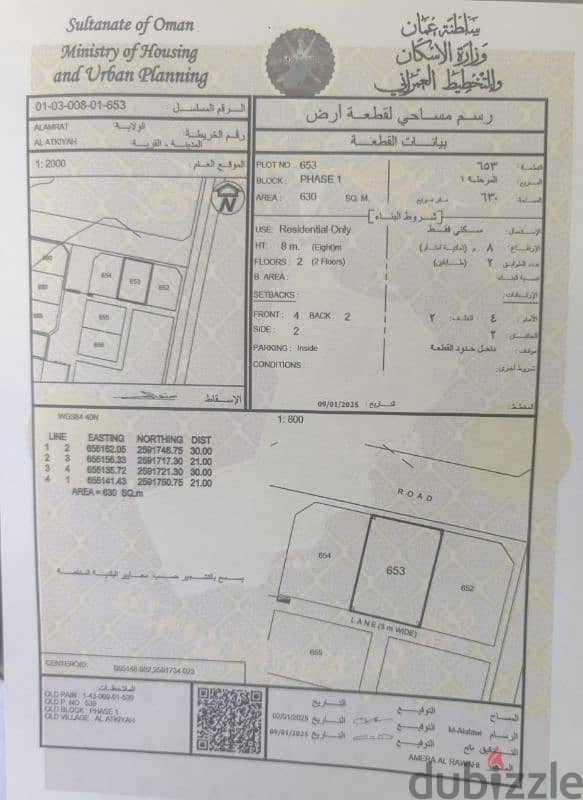 Sultanate of Oman
Ministry of Housing
and Urban Planning
سلطنة عمان
وزارة الإسكان
والتخطيط العمراني
01-03-008-01-653 الرقم المسلسل :
ALAMRAT الولاية :
رقم الخريطة :
AL ATKIYAH المدينة - القرية :
1: 2000 الموقع العام :
660
654
653
652
655
656
الإسقاط
رسم مساحي لقطعة أرض
بيانات القطعة
PLOT NO : 653 ٦٥٣ القطعة :
BLOCK : PHASE 1 المرحلة ١ المربع :
AREA : 630 SQ. M. متر مربع ٦٣٠ المساحة :
شروط البناء
USE: Residential Only سكني فقط الإستعمال :
HT: 8 m. (Eight)m ٨ م (ثمانية أمتار) الإرتفاع :
FLOORS : 2 (2 Floors) ٢ (طابقين) عدد الطوابق :
B. AREA : نسبة البناء :
SETBACKS : الإرتدادات :
FRONT : 4 BACK : 2 الأمام : ٤ الخلف : ٢
SIDE : 2 ٢ الجانبان :
PARKING : Inside داخل حدود القطعة موقف :
CONDITIONS : شروط أخرى :
09/01/2025 التاريخ : المخطط :
WGS84 40N
1: 800
LINE EASTING NORTHING DIST
1 2 655162.05 2591746.75 30.00
2 3 655156.33 2591717.30 21.00
3 4 655135.72 2591721.30 30.00
4 1 655141.43 2591750.75 21.00
AREA = 630 SQ.m
ROAD
654
653
652
LANE (3 m WIDE)
655
يسمح بالتشجير حسب معايير البلدية المختصة
CENTEROID: 655148.882,2591734.023
الملاحظات :
OLD PAIN : 1-43-069-01-539
OLD P. NO : 539
OLD BLOCK : PHASE 1
OLD VILLAGE : AL ATKIYAH
التاريخ التوقيع المساح
02/01/2025 التاريخ التوقيع الرسام M-Alalawi
09/01/2025 التاريخ التوقيع
AMERA AL RAWAHI
dubizzle